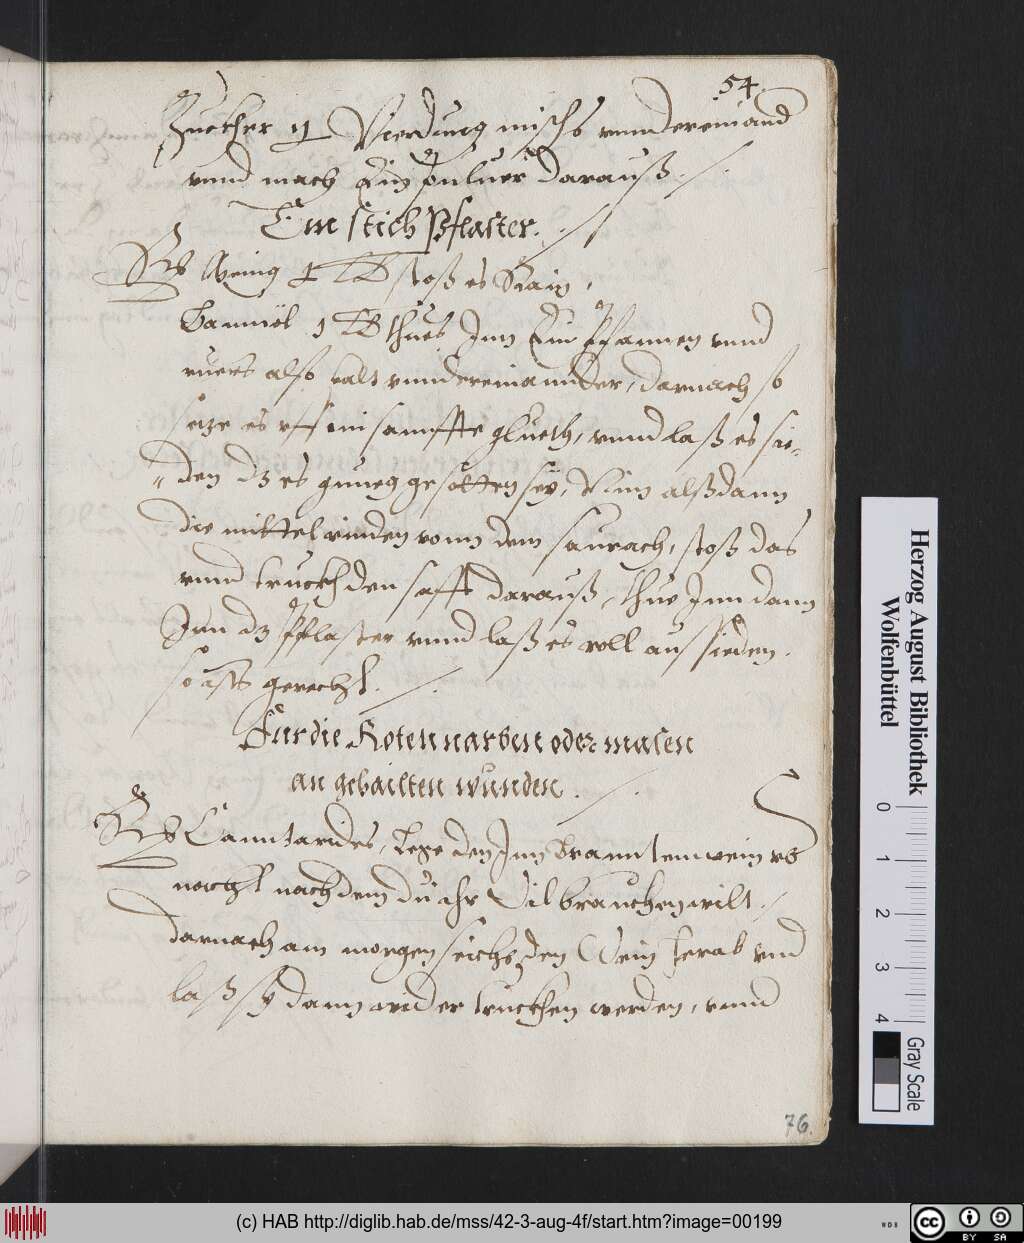 54.
Zuckher 1 Vierdung mischs vnndereinand
vnnd mach Ein puluer darauß.
Ein stich Pflaster.
Rx 1 lb stoß es klain,
Bamnöl 1 lb thues Jnn Ein Pfannen vnnd
ruers also kalt vnndereinannder, darnach so
setze es vff ein sanffte glueth, vnnd laß es sie-
den dz es gnueg gesotten sey, Nim alßdann
die mittel rinden vonn dem saurach, stoß das
vnnd truckh den safft darauß, thue Jnn dann
Jnn dz Pflaster vnnd laß es woll aus sieden.
so ists gerecht.
Fur die Roten narben oder masen
an gehailten wunden.
Rx Canntarides, lege den Jnn Branntenwein vb
nacht nach dem du ihr Vil brauchen wilt.
darnach am morgen seichs den Wein herab vnd
laß sy dann wider truckhen werden, vnnd
76.
Herzog August Bibliothek
Wolfenbüttel
0 1 2 3 4
Gray Scale
(c) HAB http://diglib.hab.de/mss/42-3-aug-4f/start.htm?image=00199
WDB
cc BY SA